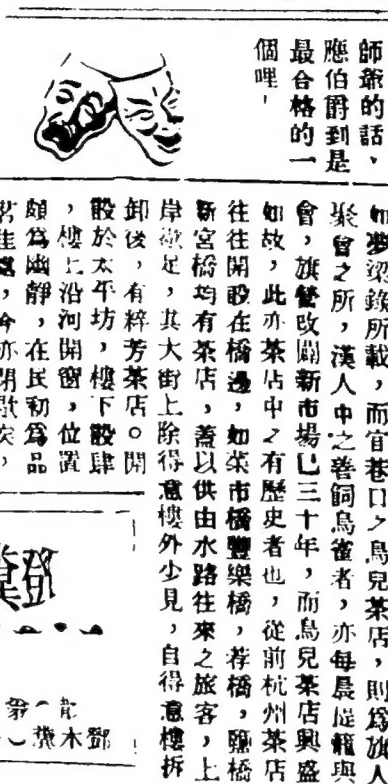 師爺的話，
應伯爵到是
最合格的一
個哩，
如夢梁錄所載，而官巷口之鳥兒茶店，則爲旗人
聚會之所，漢人中之善飼鳥雀者，亦每晨提籠與
會，旗營改闢新市場已三十年，而鳥兒茶店興盛
如故，此亦茶店中之有歷史者也，從前杭州茶店
往往開設在橋邊，如菜市橋豐樂橋，荐橋，鹽橋
新宮橋均有茶店，蓋以供由水路往來之旅客，上
岸歇足，其大街上除得意樓外少見，自得意樓拆
卸後，有粹芳茶店。開
設於太平坊，樓下設肆
，樓上沿河開窗，位置
頗爲幽靜，在民初爲品
茗佳處，今亦閉歇矣，
鄧
龍
鄧木
第